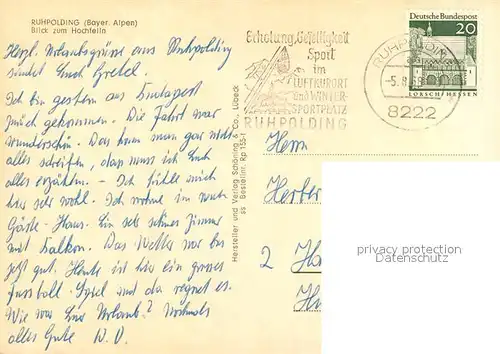 RUHPOLDING (Bayer. Alpen)
Blick zum Hochfelln
Herzl. Urlaubsgrüsse aus Ruhpolding
sendet Euch Gretel.
Ich bin gestern aus Budapest
zurück gekommen. Die Fahrt war
wunderschön. Das kann man gar nicht
alles schreiben, das muss ich Euch
alles erzählen. - Ich fühle mich
hier sehr wohl. Ich wohne im
Gäste-Haus. Ein sehr schönes Zimmer
mit Balkon. Das Wetter war bis
jetzt gut. Heute ist hier ein grosses
Fussball-Spiel und da regnet es.
Wie war Euer Urlaub? Nochmals
alles Gute
Hersteller und Verlag Schöning & Co., Lübeck
ss Bestellnr. Rp 155-1
Erholung, Geselligkeit
Sport
im
LUFTKURORT
und WINTER-
SPORTPLATZ
RUHPOLDING
RUHPOLDING
8222
Deutsche Bundespost
20
LORSCH/HESSEN
Herrn
Herber
2 Ha
privacy protection
Copyright